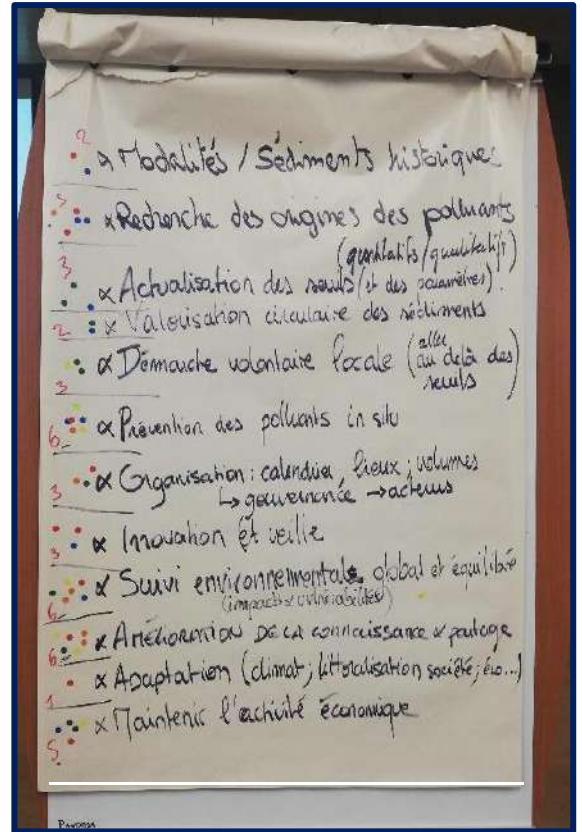 2 x Modalités / Sédiments historiques
5 x Recherche des origines des polluants
(quantitatifs/qualitatifs)
3 x Actualisation des seuils (et des paramètres).
2 x Valorisation circulaire des sédiments
3 x Démarche volontaire locale (aller au delà des seuils)
6 x Prévention des polluants in situ
3 x Organisation : calendrier, lieux ; volumes
↳ gouvernance → acteurs
3 x Innovation et veille
6 x Suivi environnemental global et équilibré
(impacts & vulnérabilités)
6 x AMÉLIORATION DE LA connaissance & partage
1 x Adaptation (climat ; littoralisation société ; éco...)
5 x Maintenir l'activité économique